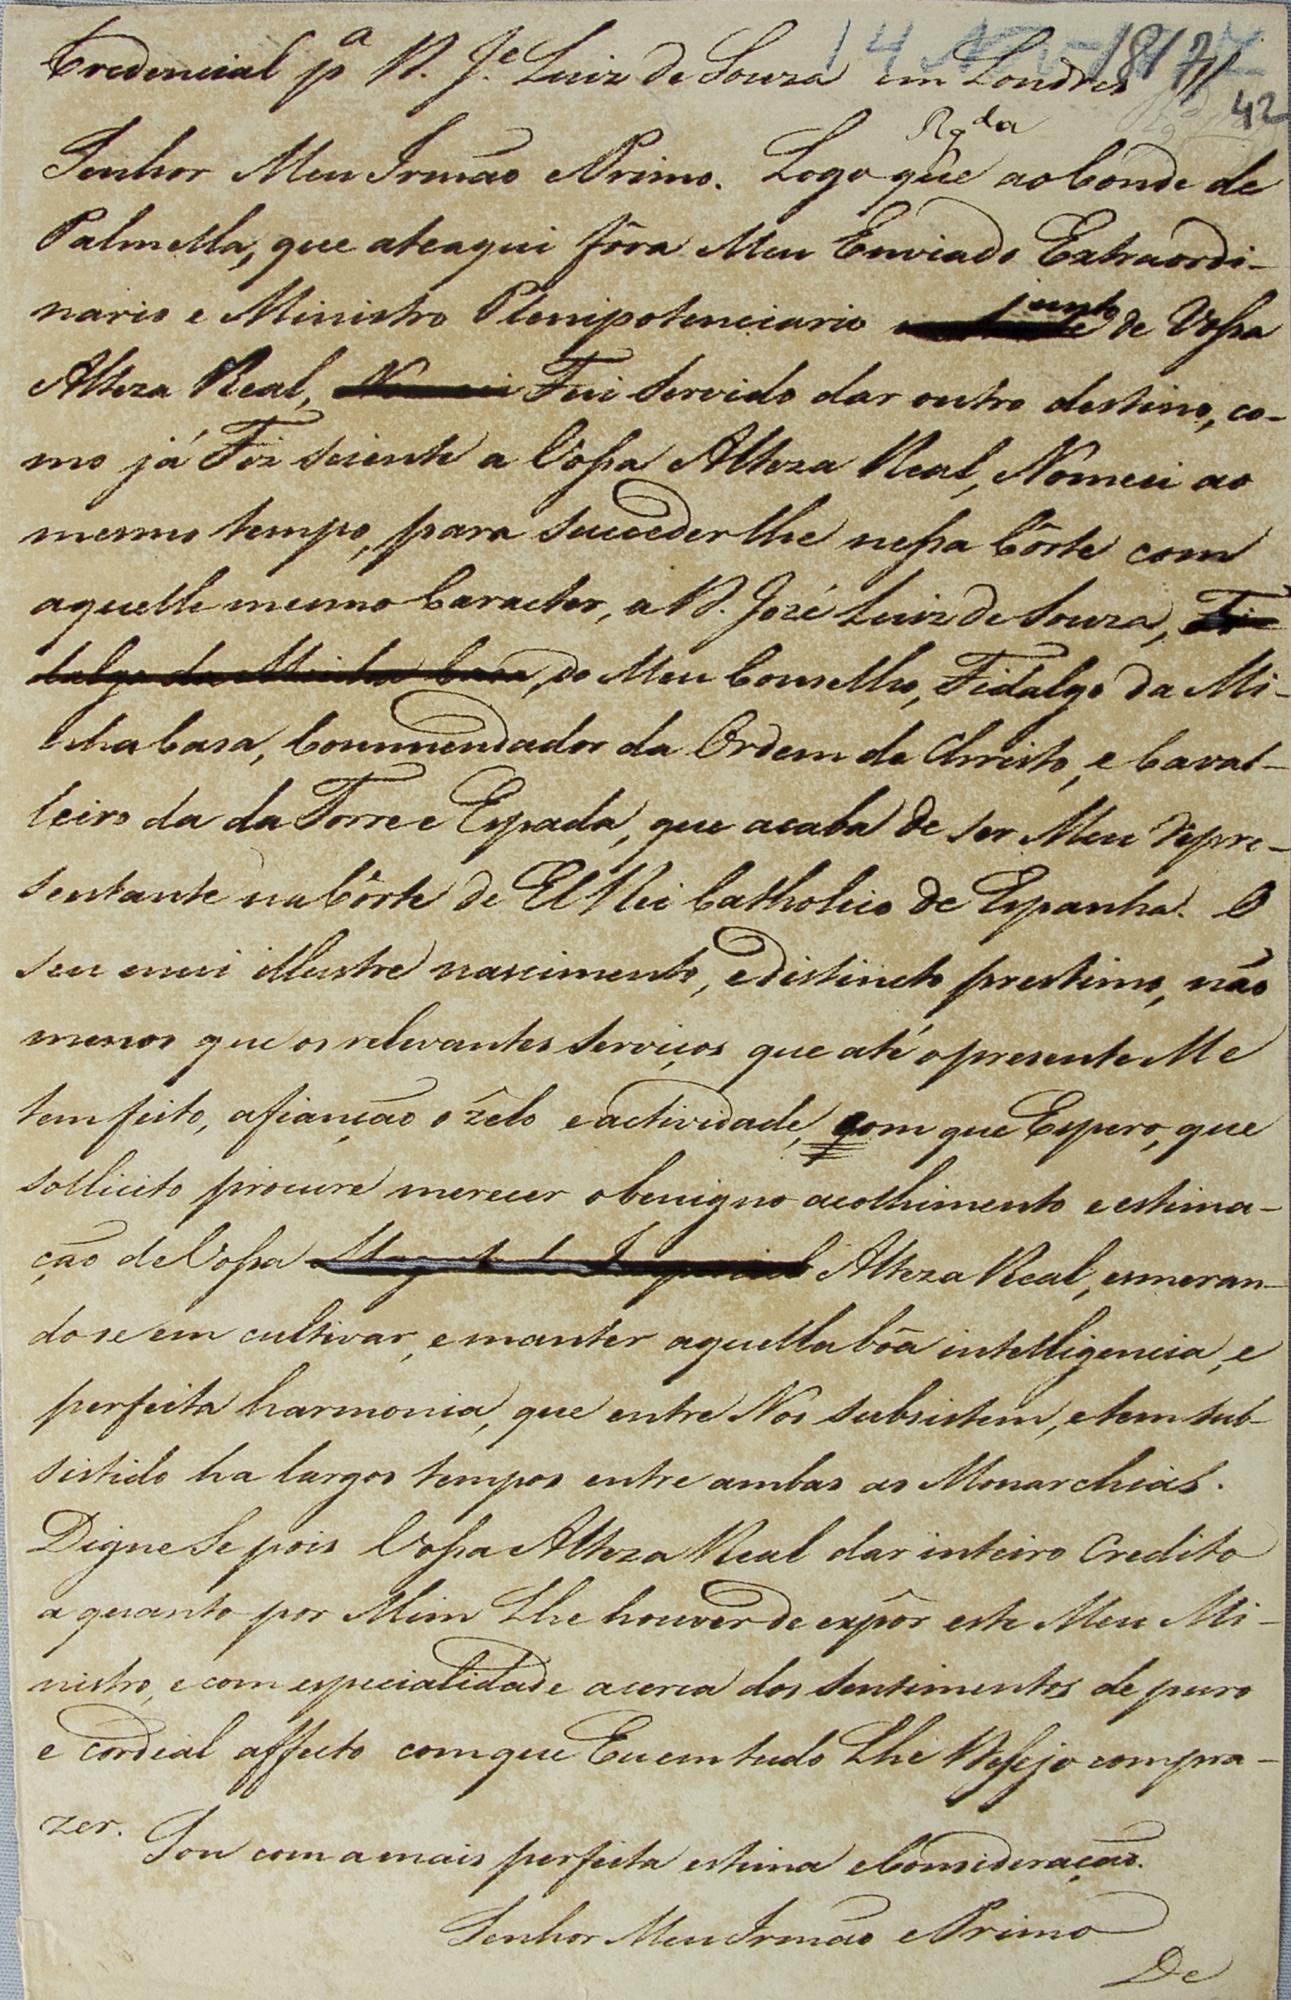 Credencial pª D. Jᵉ Luiz de Souza em Londres
14 Nov 1817
42
Rgda
Senhor Meu Irmão e Primo. Logo que ao Conde de
Palmella, que ateaqui fôra Meu Enviado Extraordi-
nario e Ministro Plenipotenciario junto de Vossa
Alteza Real, Nomeei Fui servido dar outro destino, co-
mo já Fiz sciente a Vossa Alteza Real, Nomeei ao
mesmo tempo, para succeder lhe nessa Côrte com
aquelle mesmo Caracter, a D. Jozé Luiz de Souza, Fi-
dalgo da Minha Casa, do Meu Conselho, Fidalgo da Mi-
nha Casa, Commendador da Ordem de Christo, e Caval-
leiro da da Torre e Espada, que acaba de ser Meu repre-
sentante na Côrte de El Rei Catholico de Espanha. O
seu mui illustre nascimento, e distincto prestimo, não
menos que os relevantes serviços que até o presente Me
tem feito, afiançao o zêlo e actividade, com que Espero, que
sollicito procure merecer o benigno acolhimento e estima-
ção de Vossa Magestade Imperial Alteza Real, esmeran-
dose em cultivar, e manter aquella bôa intelligencia, e
perfeita harmonia, que entre Nós subsistem, e tem sub-
sistido ha largos tempos entre ambas as Monarchias.
Digne Se pois Vossa Alteza Real dar inteiro Credito
a quanto por Mim Lhe houver de expôr este Meu Mi-
nistro, e com especialidade acerca dos sentimentos de puro
e cordial affecto com que Eu em tudo Lhe Desejo compra-
zer.
Sou com a mais perfeita estima e Consideração.
Senhor Meu Irmão e Primo
De